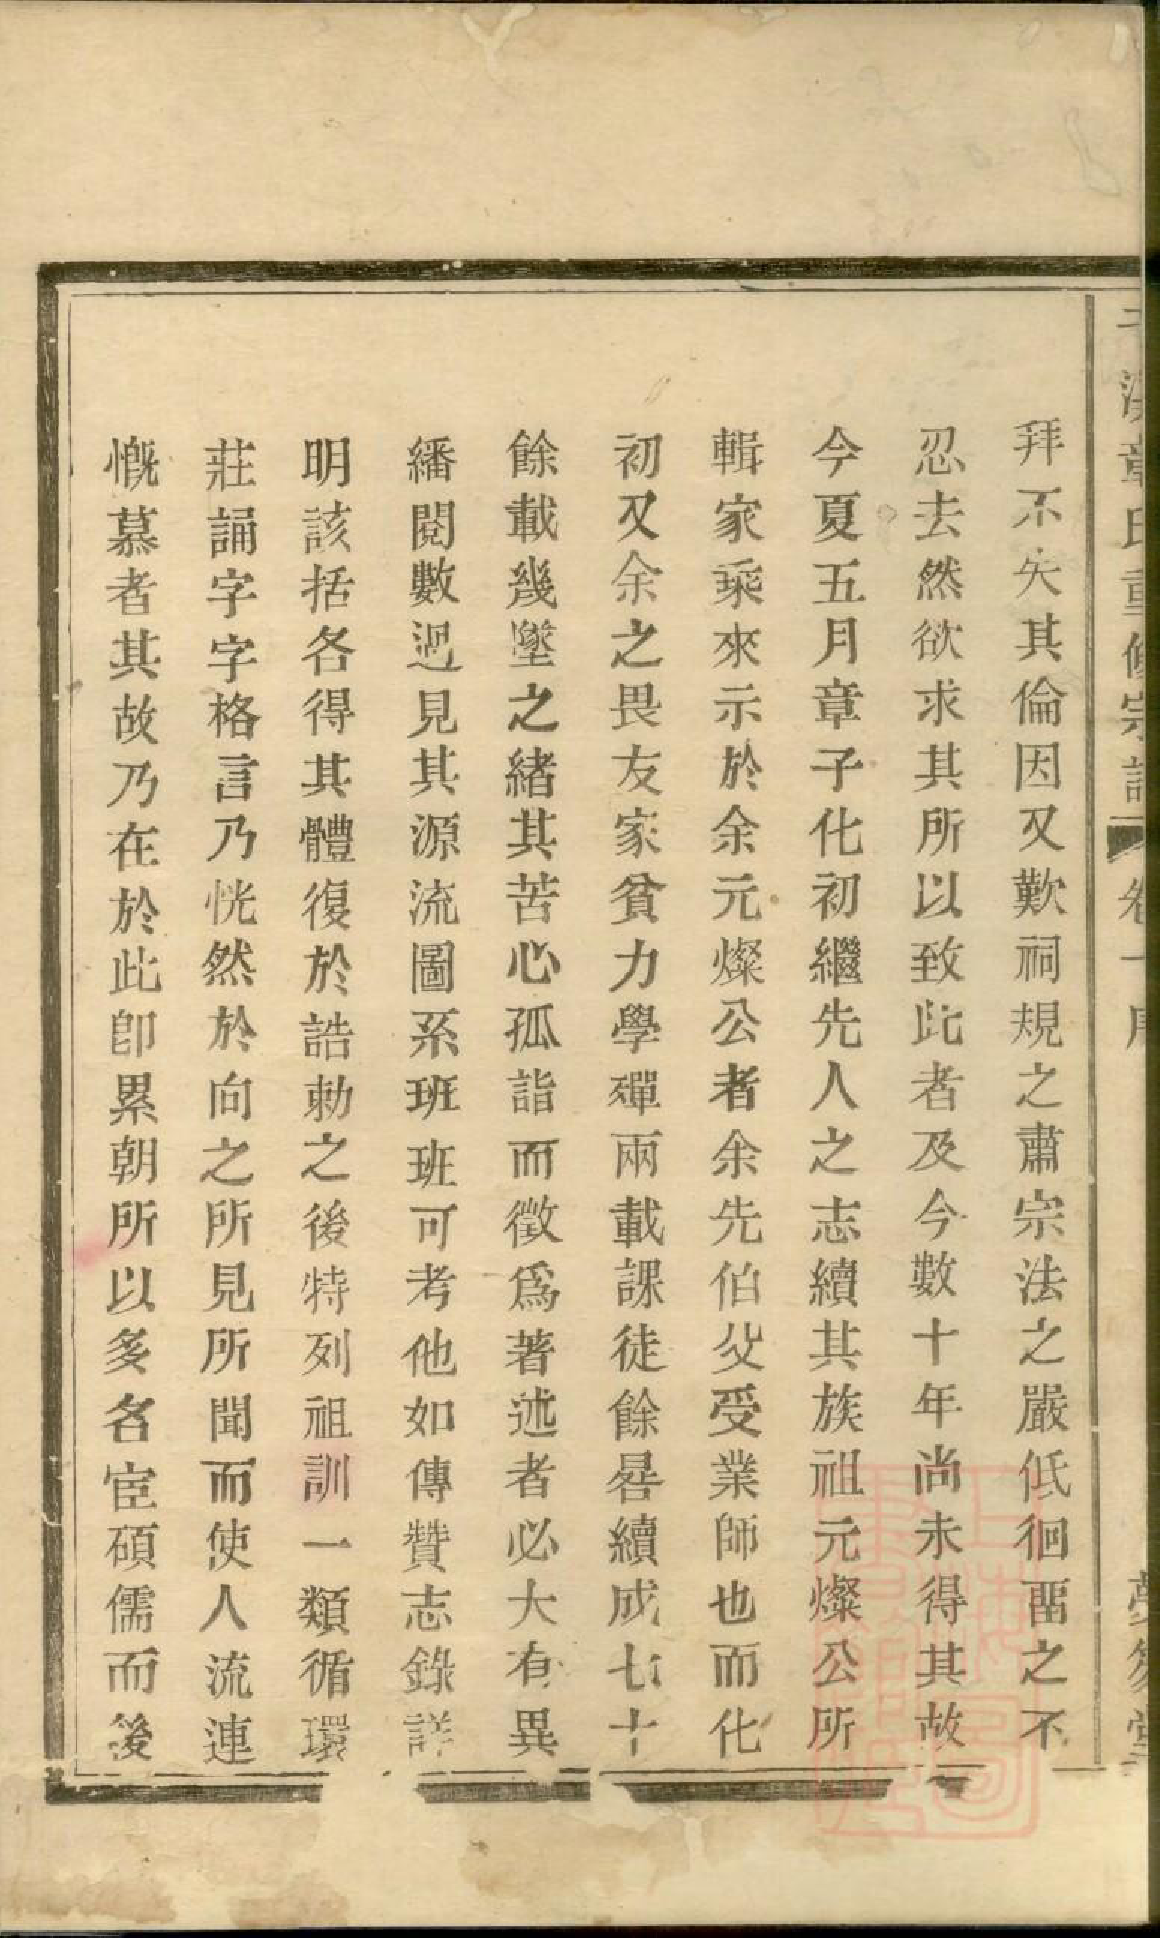 章氏重修宗譜 卷一序
拜不失其倫因又歎祠規之肅宗法之嚴低徊畱之不
忍去然欲求其所以致此者及今數十年尚未得其故
今夏五月章子化初繼先人之志續其族祖元燦公所
輯家乘來示於余元燦公者余先伯父受業師也而化
初又余之畏友家貧力學殫兩載課徒餘晷續成七十
餘載幾墜之緒其苦心孤詣而徵爲著述者必大有異
繙閱數過見其源流圖系班班可考他如傳贊志錄詳
明該括各得其體復於誥勅之後特列祖訓一類循環
莊誦字字格言乃恍然於向之所見所聞而使人流連
慨慕者其故乃在於此卽累朝所以多名宦碩儒而後